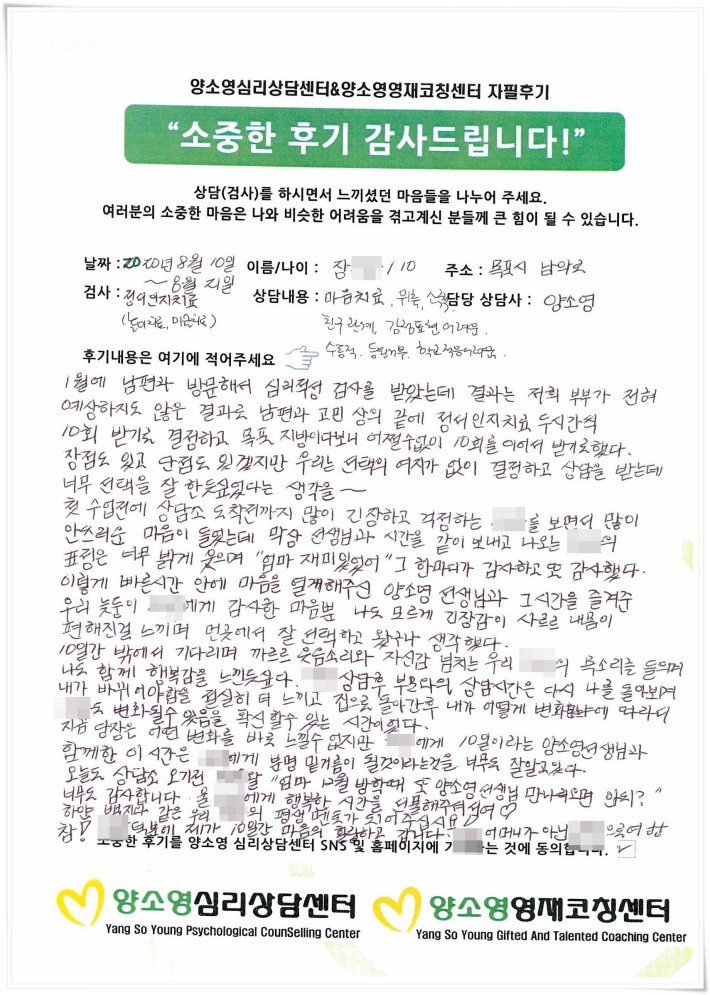 양소영심리상담센터&양소영영재코칭센터 자필후기
“소중한 후기 감사드립니다!”
상담(검사)를 하시면서 느끼셨던 마음들을 나누어 주세요.
여러분의 소중한 마음은 나와 비슷한 어려움을 겪고계신 분들께 큰 힘이 될 수 있습니다.
날짜 : 2020년 8월 10일 이름/나이 : /10 주소 : 목포시 남악로
~ 8월 21일
검사 : 정서인지치료 상담내용 : 마음치료, 위축, 담당 상담사 : 양소영
(놀이치료, 미술치료) 친구관계, 감정표현 어려움.
후기내용은 여기에 적어주세요 수동적, 등원거부, 학교적응어려움.
1월에 남편과 방문해서 심리적성 검사를 받았는데 결과는 저희 부부가 전혀
예상하지도 않은 결과로 남편과 고민 상의 끝에 정서인지치료 두시간씩
10회 받기로 결정하고 목포 지방이다보니 어쩔수없이 10회를 이어서 받기로했다.
장점도 있고 단점도 있겠지만 우리는 선택의 여지가 없이 결정하고 상담을 받는데
너무 선택을 잘 한듯싶었다는 생각을~
첫 수업전에 상담소 도착전까지 많이 긴장하고 걱정하는 를 보면서 많이
안쓰러운 마음이 들었는데 막상 선생님과 시간을 같이 보내고 나오는 의
표정은 너무 밝게 웃으며 "엄마 재미있었어" 그 한마디가 감사하고 또 감사했다.
이렇게 빠른시간 안에 마음을 열게해주신 양소영 선생님과 그시간을 즐겨준
우리 늦둥이 에게 감사한 마음뿐 나도 모르게 긴장감이 사르르 내몸이
편해진걸 느끼며 먼곳에서 잘 선택하고 왔구나 생각했다.
10일간 밖에서 기다리며 까르르 웃음소리와 자신감 넘치는 우리 의 목소리를 들으며
나도 함께 행복감을 느낀듯싶다. 상담후 부모와의 상담시간은 다시 나를 돌아보며
내가 바뀌어야함을 절실히 더 느끼고 집으로 돌아간후 내가 어떻게 변화함에 따라
도 변화될수 있음을 확신할수 있는 시간이었다.
지금 당장은 어떤 변화를 바로 느낄수 없지만 에게 10일이라는 양소영선생님과
함께한 이 시간은 에게 분명 밑거름이 될것이라는것을 너무도 잘알고있다.
오늘도 상담소 오기전 "엄마 12월 방학때 또 양소영선생님 만나러오면 안돼?"
너무도 감사합니다. 울 에게 행복한 시간을 선물해주셔서여♡
하얀 백지와 같은 우리 의 평생 멘토가 되어주십시요♡
참! 덕분에 제가 10일간 마음의 하고 갑니다. 어머니가 아닌
소중한 후기를 양소영 심리상담센터 SNS 및 홈페이지에 는 것에 동의합니다. ✓
양소영심리상담센터 양소영영재코칭센터
Yang So Young Psychological CounSelling Center Yang So Young Gifted And Talented Coaching Center